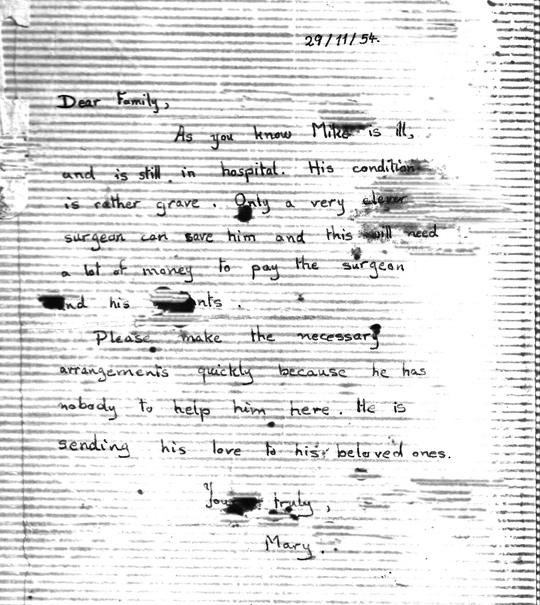 29/11/54.
Dear Family,
As you know Mike is ill,
and is still in hospital. His condition
is rather grave. Only a very clever
surgeon can save him and this will need
a lot of money to pay the surgeon
and his
Please make the necessary
arrangements quickly because he has
nobody to help him here. He is
sending his love to his beloved ones.
truly,
Mary.